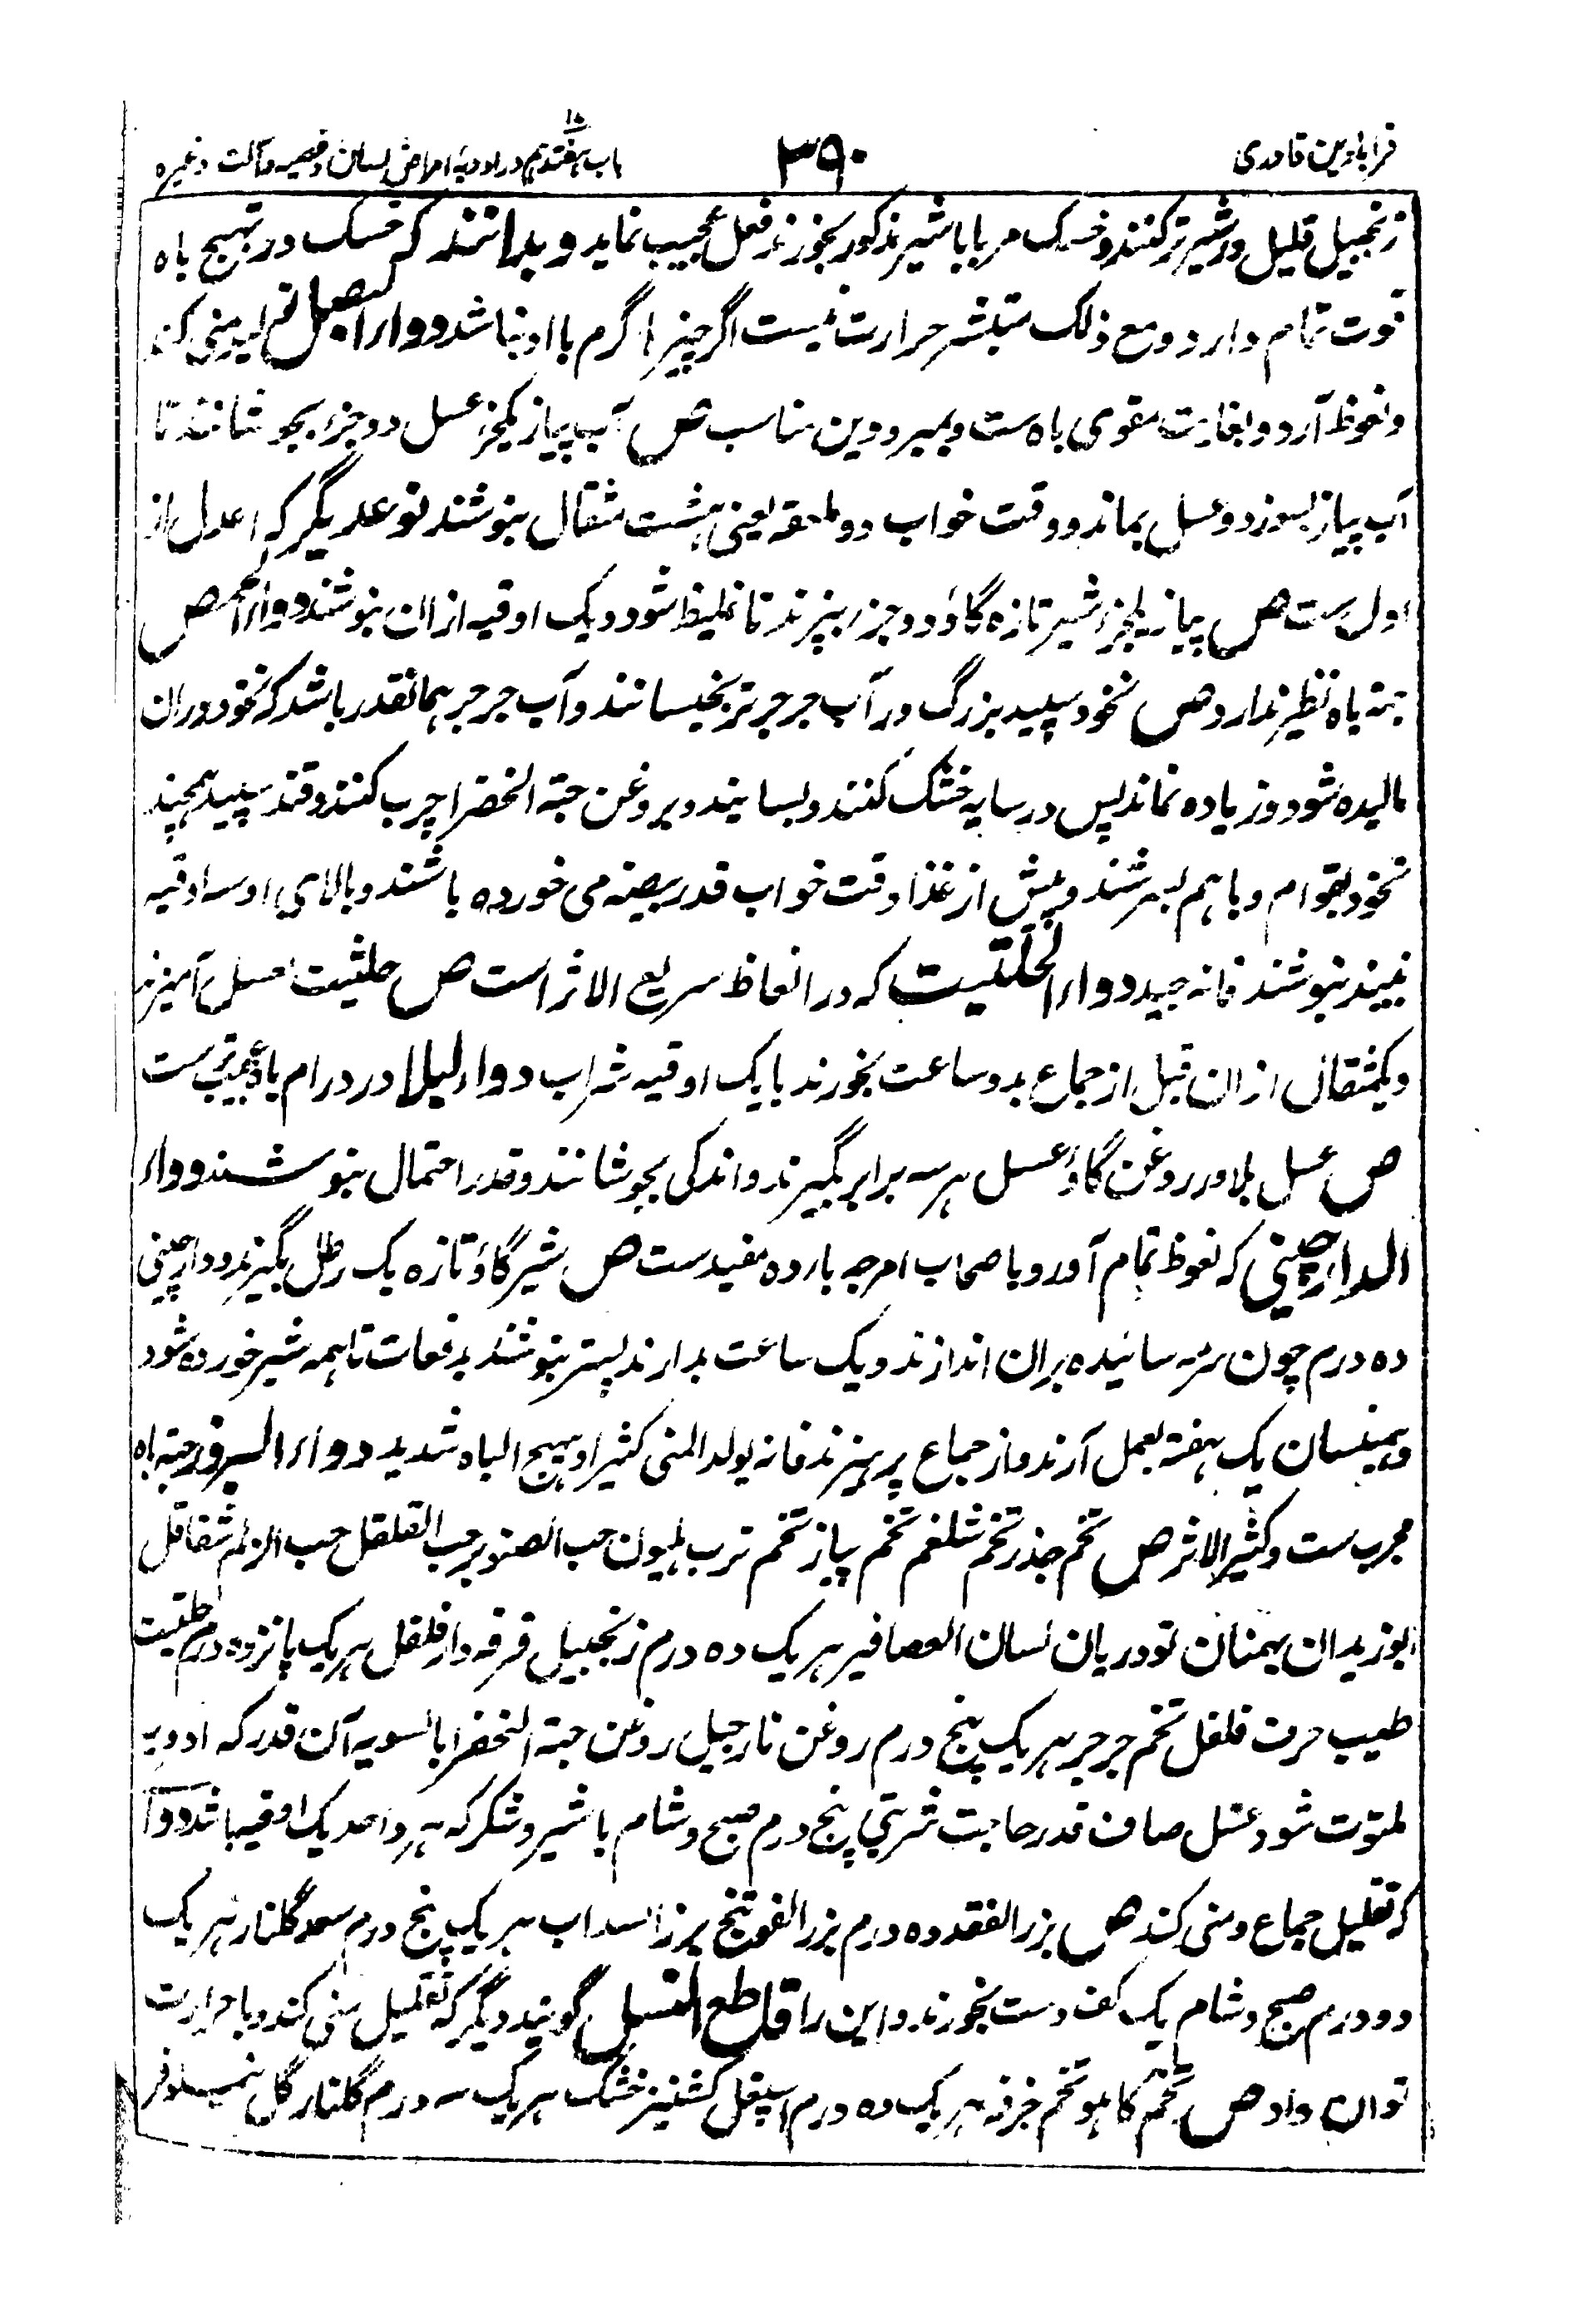 قرابادین قادری
۳۹۰
باب هفتدهم در ادویهٔ امراض لسان و خصیه و آلت وغیره
زنجبیل قلیل در شیر تر کنند و خسک مربا با شیر مذکور بخورند فعل عجیب نماید و بدانند که خسک در تهییج باه
قوت تمام دارد و مع ذلک متبشر حرارت نیست اگر چیز گرم با او نباشد دواء البصل تولید منی کند
و نعوظ آرد و بغایت مقوی باه ست و بمبرودین مناسب ص آب پیاز یکجز عسل دو جزء بجوشانند تا
آب پیاز بسوزد و عسل بماند و وقت خواب دو ملعقه یعنی هشت مثقال بنوشند نوعدیگر که اعدل از
اول ست ص پیاز یکجز شیر تازه گاؤ دو جزء بپزند تا غلیظ شود و یک اوقیه ازان بنوشند دواء الحمص
جهة باه نظیر ندارد ص نخود سپید بزرگ در آب جرجیر تر بخیسانند و آب جرجیر همانقدر باشد که نخود دران
مالیده شود و زیاده نماند پس در سایه خشک کنند و بسایند و بروغن حبة الخضرا چرب کنند و قند سپید همچند
نخود بقوام و باهم بسرشند و پیش از غذا وقت خواب قدر بیضه می خورده باشند و بالای او سه اوقیه
نبیذ بنوشند فانه جید دواء الحلتیت که در انعاظ سریع الاثر است ص حلتیت بعسل آمیزند
و یکمثقال ازان قبل از جماع بدو ساعت بخورند با یک اوقیه شراب دواء لیلا در درام باه عجیب ست
ص عسل بلادر روغن گاؤ عسل هر سه برابر بگیرند و اندکی بجوشانند و قدر احتمال بنوشند دواء
الدارچینی که نعوظ تمام آورد و باصحاب امزجه بارده مفید ست ص شیر گاؤ تازه یک رطل بگیرند و دارچینی
ده درم چون سرمه سائیده بران اندازند و یک ساعت بدارند پستر بنوشند بدفعات تا همه شیر خورده شود
و همینسان یک هفته بعمل آرند و از جماع پرهیزند فانه یولد المنی کثیرا و یهیج الباه شدید دواء السرور جهة باه
مجرب ست و کثیر الاثر ص تخم جزر تخم شلغم تخم پیاز تخم ترب هلیون حب الصنوبر حب القلقل حب الزلم شقاقل
بوزیدان بهمنان تودریان لسان العصافیر هر یک ده درم زنجبیل قرفه دارفلفل هر یک پانزده درم حلتیت
طیب حرف فلفل تخم جرجیر هر یک پنج درم روغن نارجیل روغن حبة الخضرا بالسویه آن قدر که ادویه
ملتوت شود عسل صاف قدر حاجت شربتی پنج درم صبح و شام با شیر و شکر که هر واحد یک اوقیه باشد دواء
که تقلیل جماع و منی کند ص بزر الفقد ده درم بزر الفوتنج بزر السداب هر یک پنج درم سعد گلنار هر یک
دو درم صبح و شام یک کف دست بخورند و این را قاطع النسل گویند دیگر که تقلیل منی کند و با حرارت
توان داد ص تخم کاهو تخم خرفه هر یک ده درم اسپغل کشنیز خشک هر یک سه درم گلنار گل نیلوفر